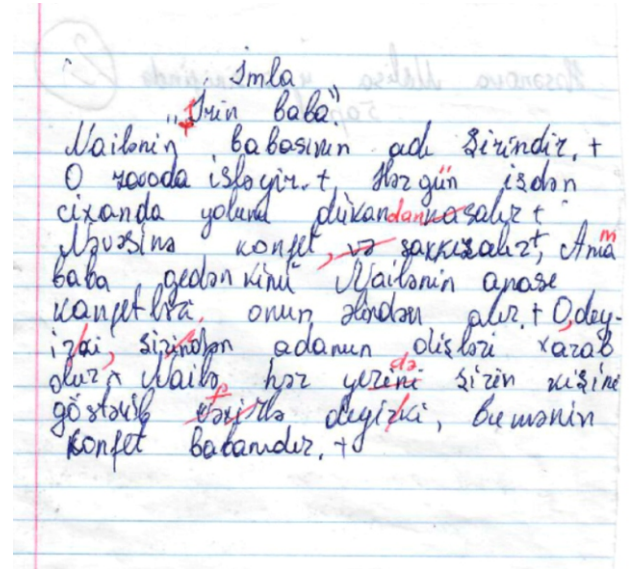 İmla
"Şirin baba"
Nailənin babasının adı Şirindir. +
O zavoda işləyir. + Hər gün işdən
cıxanda yolunu dükandan salır +
Nəvəsinə konfet, və şakkızalır +, Amma
baba gedən kimi Nailənin anase
kanfetləri, onun əlindən alır. + O, dey-
irki, şirindən adanun dişləri xarab
olur + Nailə hər yerində şirin kişini
göstərib fəxirlə deyirki, bu mənim
konfet babamdır. +